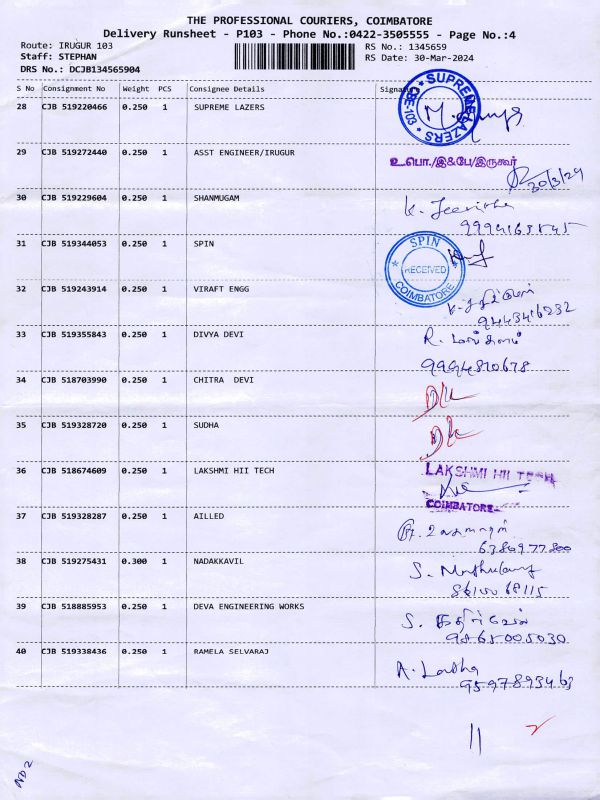 THE PROFESSIONAL COURIERS, COIMBATORE
Delivery Runsheet - P103 - Phone No.:0422-3505555 - Page No.:4
Route: IRUGUR 103
Staff: STEPHAN
DRS No.: DCJB134565904
RS No.: 1345659
RS Date: 30-Mar-2024
S No Consignment No Weight PCS Consignee Details Signature
28 CJB 519220466 0.250 1 SUPREME LAZERS
SUPREME LAZERS CBE-103
29 CJB 519272440 0.250 1 ASST ENGINEER/IRUGUR
உ.பொ./இ&பே/இருகூர்
30/3/24
30 CJB 519229604 0.250 1 SHANMUGAM
31 CJB 519344053 0.250 1 SPIN
SPIN
RECEIVED
COIMBATORE
32 CJB 519243914 0.250 1 VIRAFT ENGG
33 CJB 519355843 0.250 1 DIVYA DEVI
R.
9994810678
34 CJB 518703990 0.250 1 CHITRA DEVI
35 CJB 519328720 0.250 1 SUDHA
36 CJB 518674609 0.250 1 LAKSHMI HII TECH
LAKSHMI HII TECH
COIMBATORE
37 CJB 519328287 0.250 1 AILLED
38 CJB 519275431 0.300 1 NADAKKAVIL
39 CJB 518885953 0.250 1 DEVA ENGINEERING WORKS
S. கதிர்வேல்
9865005030
40 CJB 519338436 0.250 1 RAMELA SELVARAJ
A. Latha
9597893463
11
ND2